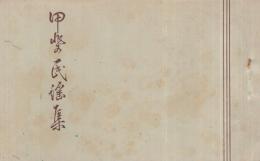 甲斐民謡集